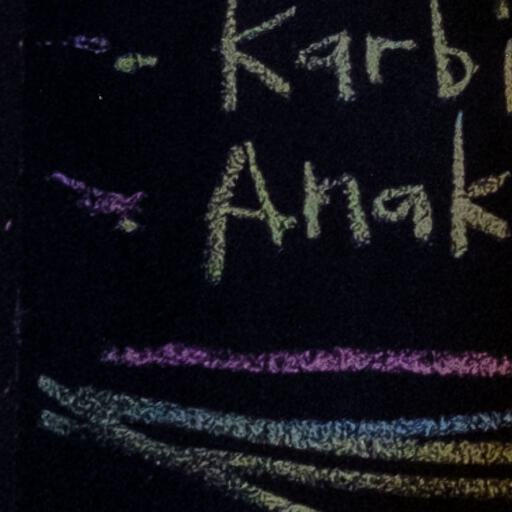 Karbi
Anak